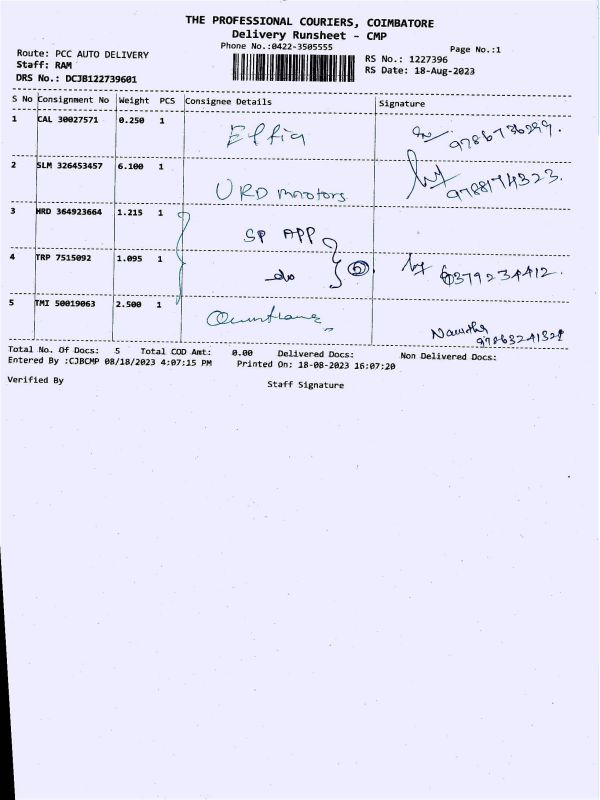 THE PROFESSIONAL COURIERS, COIMBATORE
Delivery Runsheet - CMP
Phone No.:0422-3505555
Page No.:1
Route: PCC AUTO DELIVERY
Staff: RAM
DRS No.: DCJB122739601
RS No.: 1227396
RS Date: 18-Aug-2023
S No Consignment No Weight PCS Consignee Details Signature
1 CAL 30027571 0.250 1 Effia
2 SLM 326453457 6.100 1 URD Motors 9788174323.
3 HRD 364923664 1.215 1 SP APP
4 TRP 7515092 1.095 1 do
5 TMI 50019063 2.500 1
Total No. Of Docs: 5 Total COD Amt: 0.00 Delivered Docs: Non Delivered Docs:
Entered By :CJBCMP 08/18/2023 4:07:15 PM Printed On: 18-08-2023 16:07:20
Verified By Staff Signature